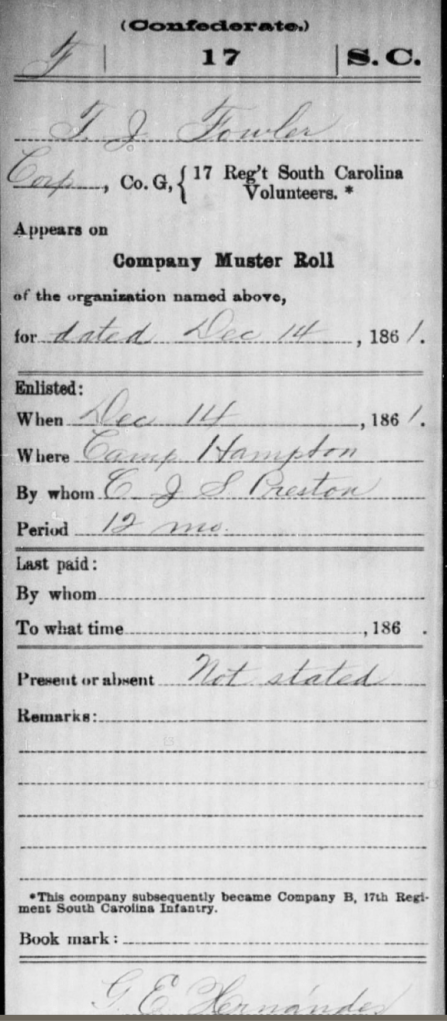 (Confederate.)
F | 17 | S. C.
T. J. Fowler
Corp, Co. G, { 17 Reg't South Carolina
Volunteers. *
Appears on
Company Muster Roll
of the organization named above,
for dated Dec 14, 1861.
Enlisted:
When Dec 14, 1861.
Where Camp Hampton
By whom C J S Preston
Period 12 mo.
Last paid:
By whom
To what time, 186 .
Present or absent Not stated
Remarks:
*This company subsequently became Company B, 17th Regi-
ment South Carolina Infantry.
Book mark:
G. E. Hernandez